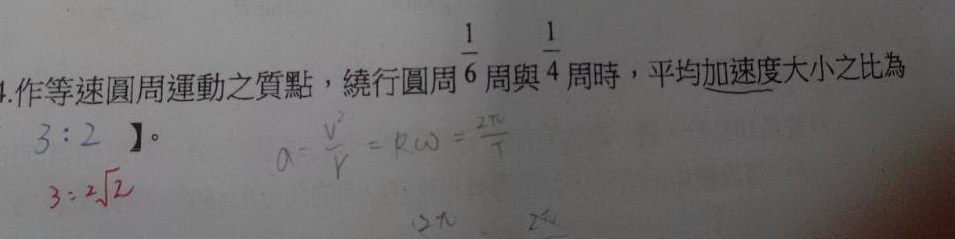 4.作等速圓周運動之質點，繞行圓周1/6周與1/4周時，平均加速度大小之比為
3:2 】。
a = v²/r = Rω = 2π/T
3:2√2
2π 2π